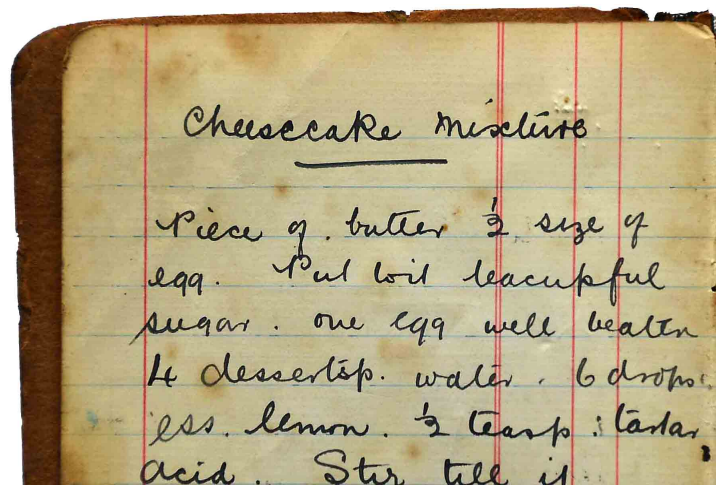 Cheesecake Mixture
Piece of butter ½ size of
egg. Put wit teacupful
sugar. one egg well beaten
4 dessertsp. water. 6 drops
ess. lemon. ½ teasp. tartar
acid. Stir till it